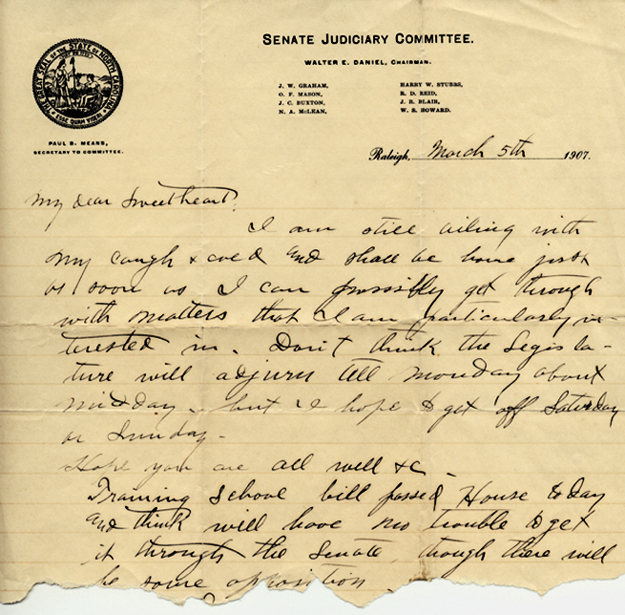 SENATE JUDICIARY COMMITTEE.
WALTER E. DANIEL, CHAIRMAN.
J. W. GRAHAM,
O. F. MASON,
J. C. BUXTON,
N. A. McLEAN,
HARRY W. STUBBS,
R. D. REID,
J. R. BLAIR,
W. S. HOWARD.
THE GREAT SEAL OF THE STATE OF NORTH CAROLINA
ESSE QUAM VIDERI
PAUL B. MEANS,
SECRETARY TO COMMITTEE.
Raleigh, March 5th 1907.
My dear Sweetheart,
I am still ailing with
my cough & cold and shall be home just
as soon as I can possibly get through
with matters that I am particularly in-
terested in. Don't think the Legisla-
ture will adjurn till Monday about
midday - but I hope to get off Saturday
or Sunday -
Hope you are all well &c -
Training School bill passed House today
and think will have no trouble to get
it through the Senate, though there will
be some opposition.